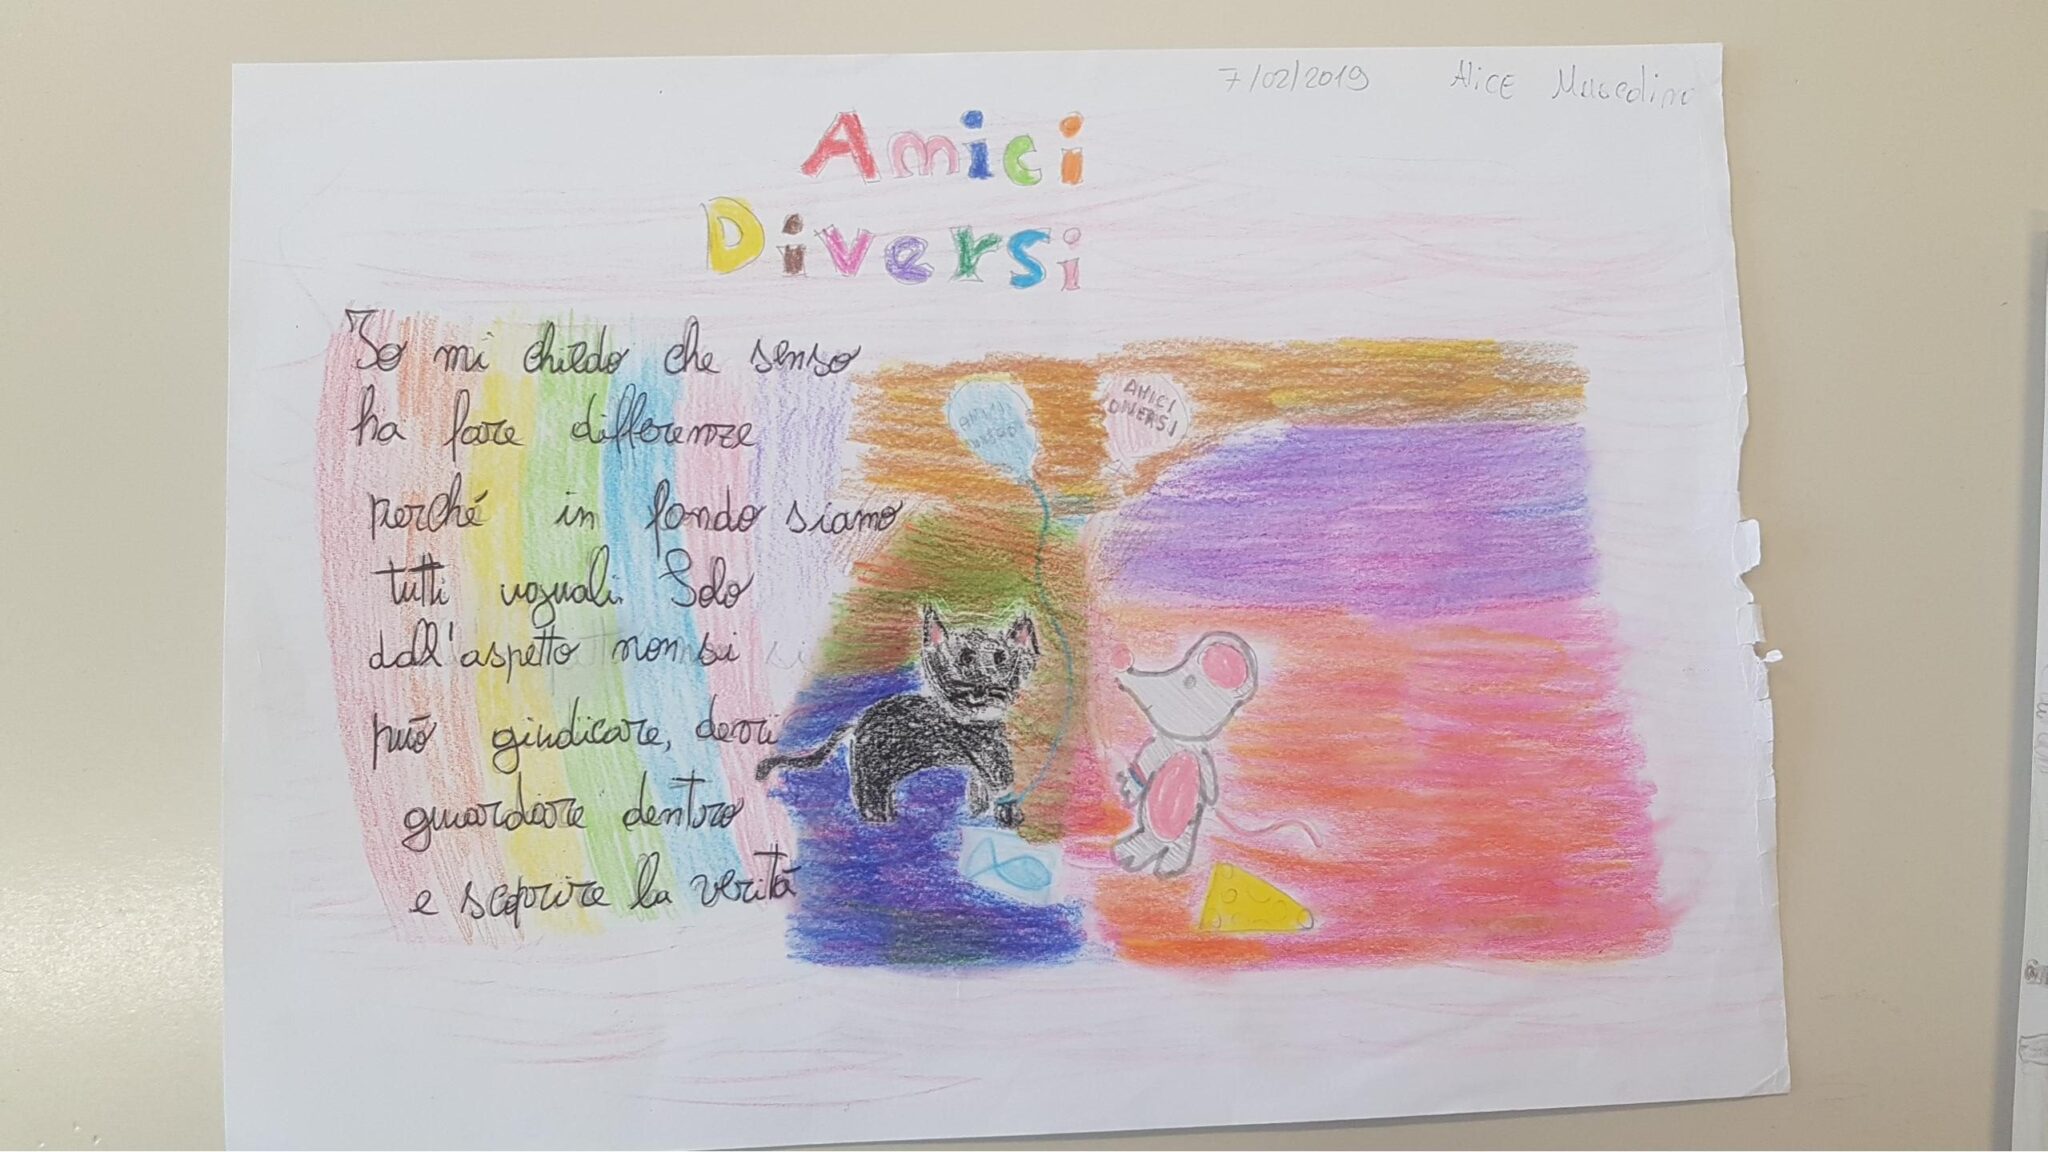 7/02/2019 Alice
Amici
Diversi
Io mi chiedo che senso
ha fare differenze
perché in fondo siamo
tutti uguali. Solo
dall'aspetto non si
può giudicare, devi
guardare dentro
e scoprire la verità
AMICI
DIVERSI
AMICI
DIVERSI